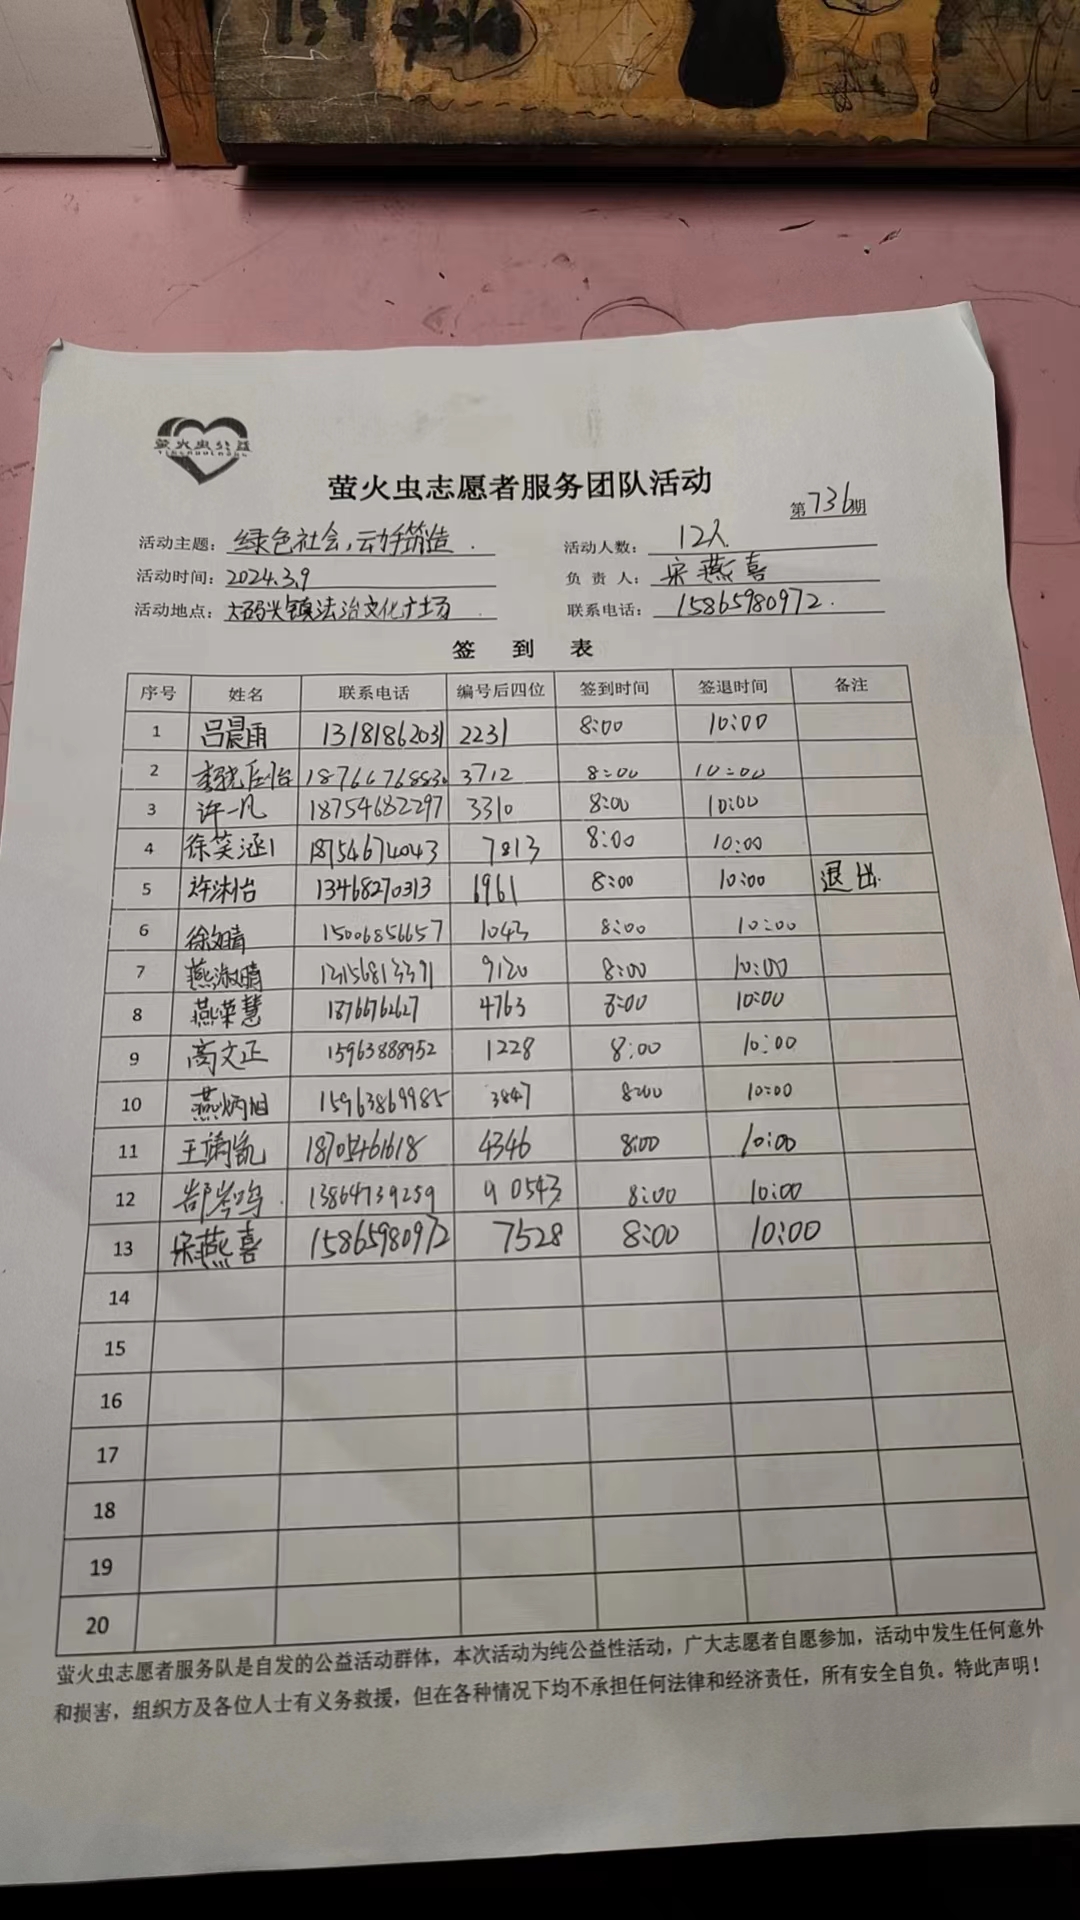 萤火虫公益
萤火虫志愿者服务团队活动
第736期
活动主题：绿色社会，动手筑造．
活动人数：12人
活动时间：2024.3.9
负责人：宋燕喜
活动地点：大码头镇法治文化广场
联系电话：15865980972.
签到表
序号 姓名 联系电话 编号后四位 签到时间 签退时间 备注
1 吕晨雨 13181862031 2231 8:00 10:00
2 3712 8:00 10:00
3 许一凡 18754682297 3310 8:00 10:00
4 徐笑涵 18754674043 7813 8:00 10:00
5 许沐怡 13468270313 6961 8:00 10:00 退出.
6 15006856657 1043 8:00 10:00
7 燕淑晴 9120 8:00 10:00
8 燕荣慧 18766762627 4763 8:00 10:00
9 高文正 15963888952 1228 8:00 10:00
10 燕炳旭 15963869985 3847 8:00 10:00
11 王靖凯 18705461618 4346 8:00 10:00
12 13864739259 90543 8:00 10:00
13 宋燕喜 15865980972 7528 8:00 10:00
14
15
16
17
18
19
20
萤火虫志愿者服务队是自发的公益活动群体，本次活动为纯公益性活动，广大志愿者自愿参加，活动中发生任何意外
和损害，组织方及各位人士有义务救援，但在各种情况下均不承担任何法律和经济责任，所有安全自负。特此声明！